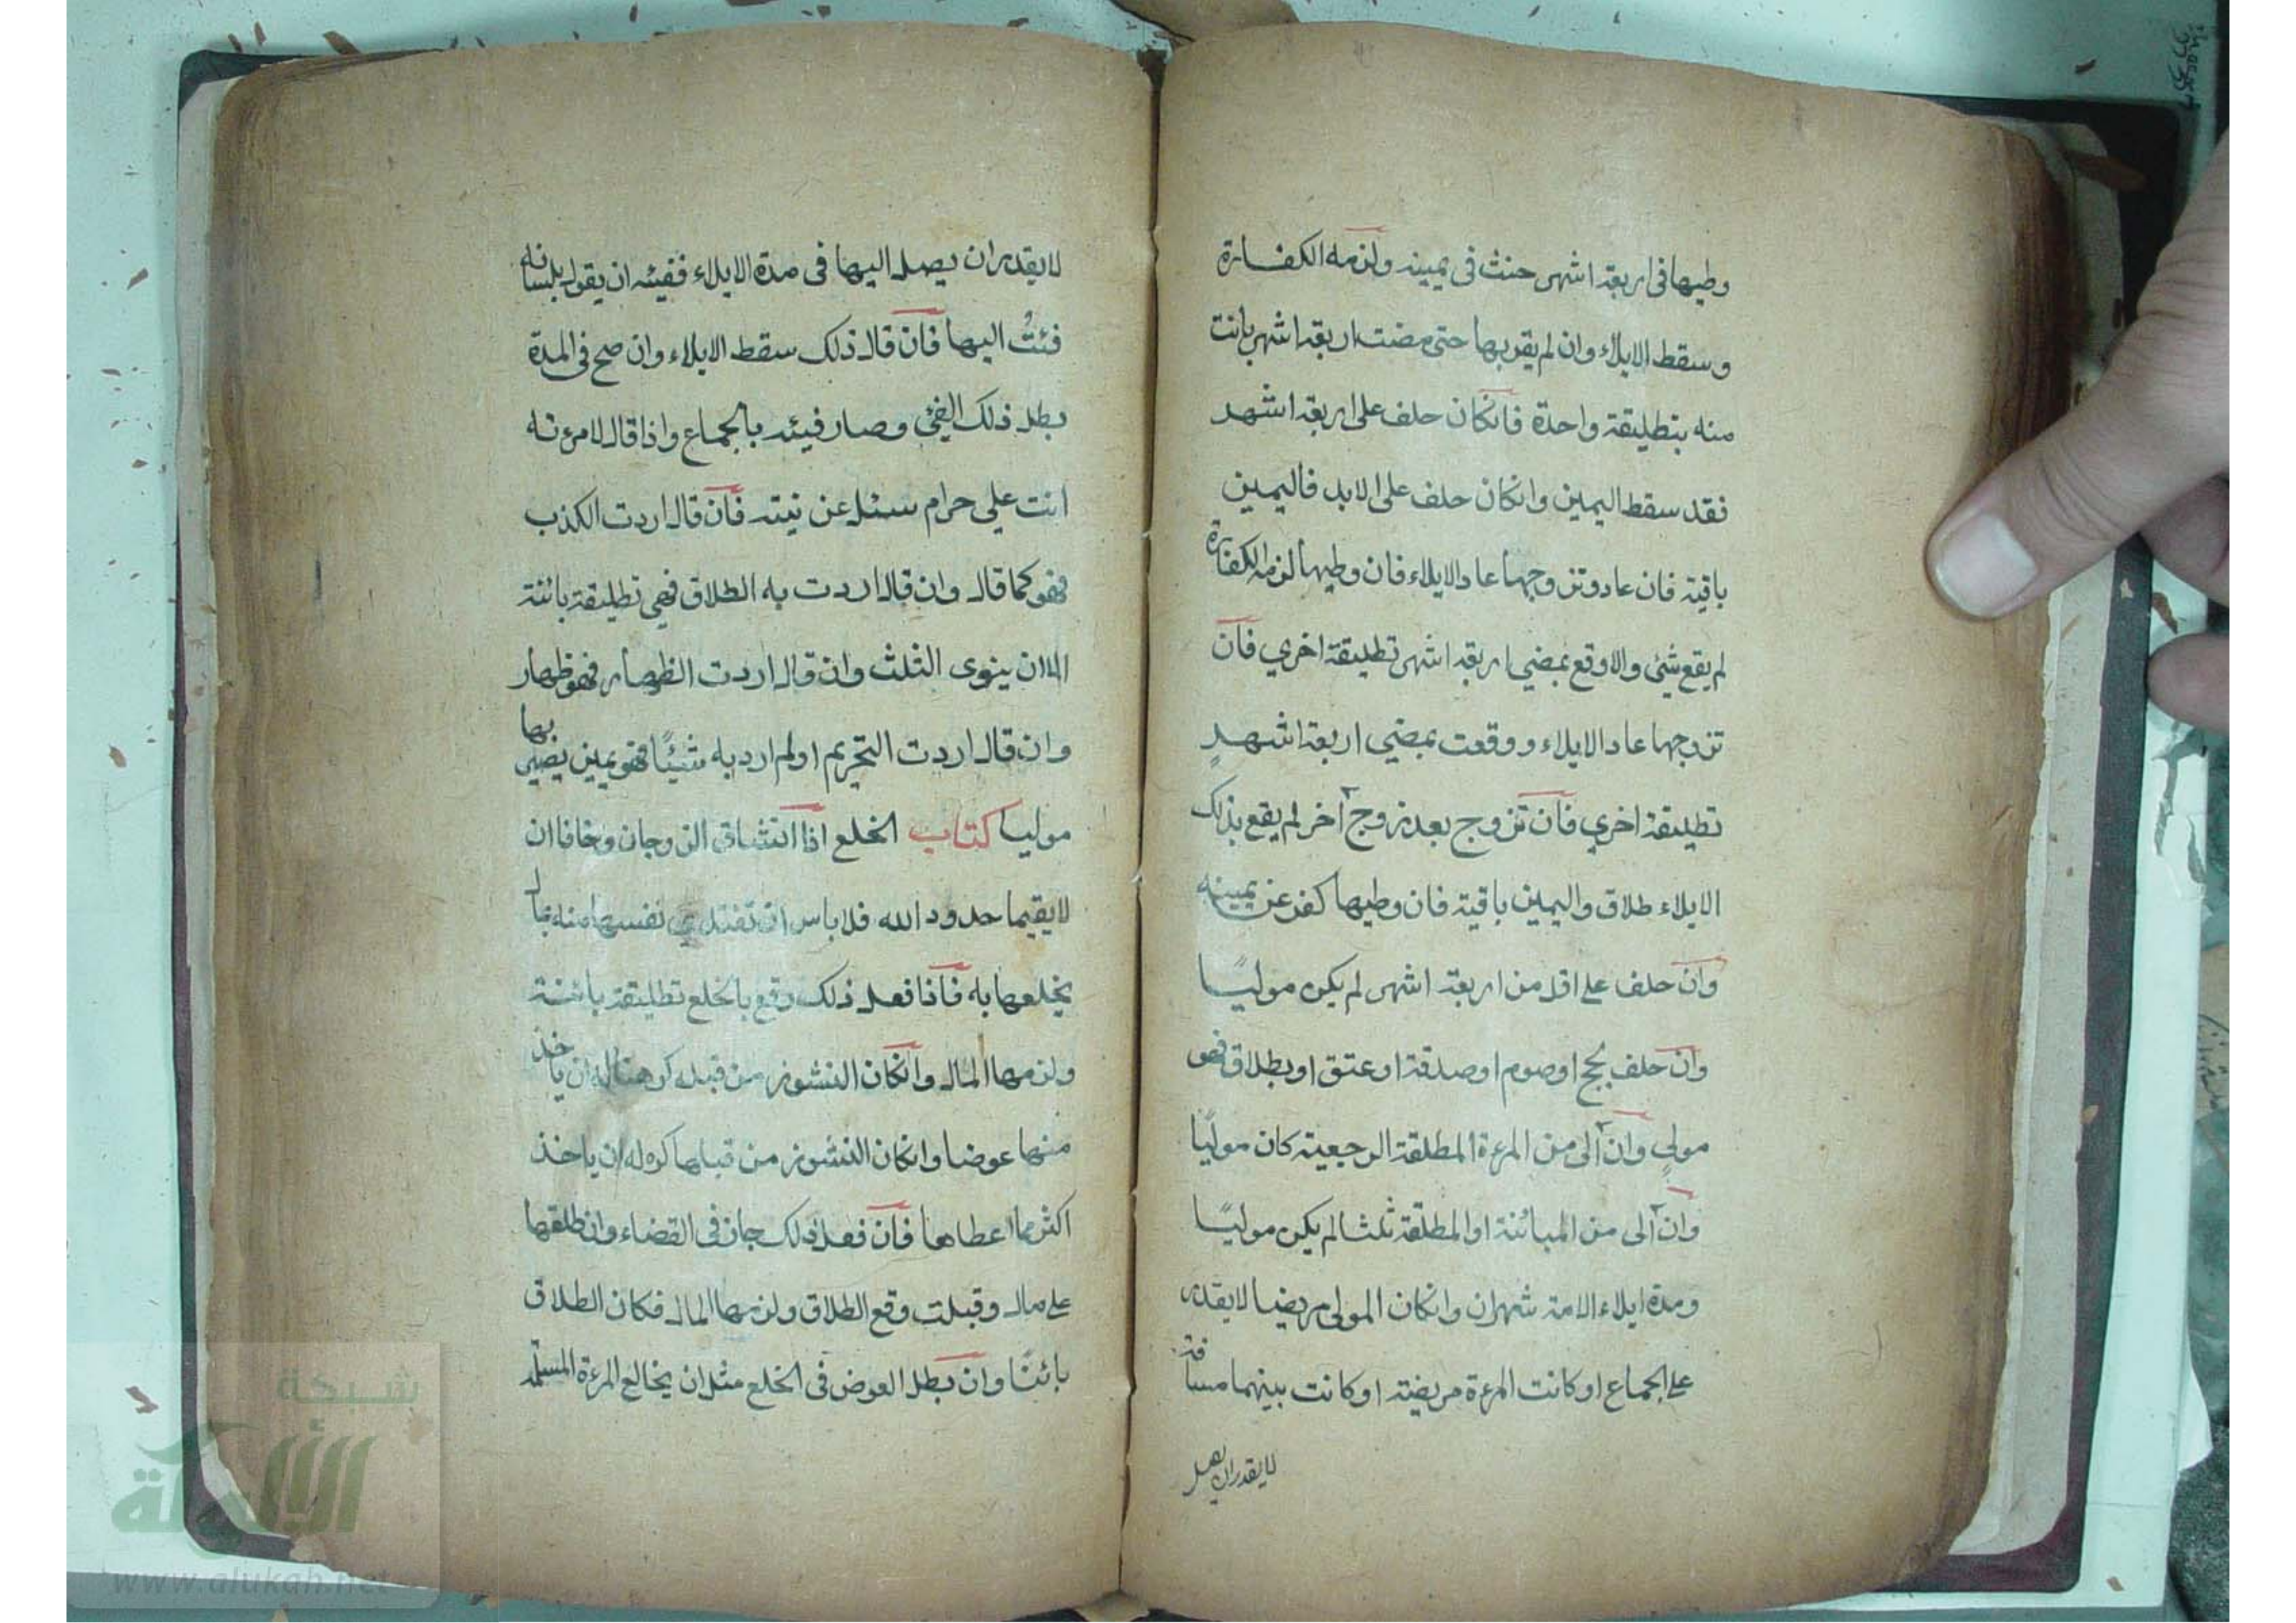 وطيها في اربعة اشهر حنث في يمينه ولزمه الكفارة
وسقط الايلاء وان لم يقربها حتى مضت اربعة اشهر بانت
منه بتطليقة واحدة فانكان حلف على اربعة اشهر
فقد سقط اليمين وانكان حلف على الابد فاليمين
باقية فان عاد وتزوجها عاد الايلاء فان وطيها لزمه الكفارة
لم يقع شئ والا وقع بمضي اربعة اشهر تطليقة اخري فان
تزوجها عاد الايلاء ووقعت بمضي اربعة اشهر
تطليقة اخري فان تزوج بعد زوج آخر لم يقع بذلك
الايلاء طلاق واليمين باقية فان وطيها كفر عن يمينه
وان حلف على اقل من اربعة اشهر لم يكن موليًا
وان حلف بحج او صوم او صدقة او عتق او بطلاق فهو
مولٍ وان آلى من المرءة المطلقة الرجعية كان موليًا
وان آلى من المبائنة او المطلقة ثلثا لم يكن موليًا
ومدة ايلاء الامة شهران وانكان المولى مريضا لا يقدر
على الجماع او كانت المرءة مريضة او كانت بينهما مسافة
لا يقدر ان يصل
لا يقدر ان يصل اليها في مدة الايلاء ففيئه ان يقول بلسانه
فئتُ اليها فان قال ذلك سقط الايلاء وان صح في المدة
بطل ذلك الفئ وصار فيئه بالجماع واذا قال لامرءته
انت علي حرام سئل عن نيته فان قال اردت الكذب
فهو كما قال وان قال اردت به الطلاق فهي تطليقة بائنة
الا ان ينوى الثلث وان قال اردت الظهار فهو ظهار
وان قال اردت التحريم او لم ارد به شيئًا فهو يمين يصير بها
موليا كتاب الخلع اذا انشاق الزوجان وخافا ان
لا يقيما حدود الله فلا باس ان تفتدي نفسها منه بمال
يخلعها به فاذا فعل ذلك وقع بالخلع تطليقة بائنة
ولزمها المال وانكان النشوز من قبله كرهنا له ان ياخذ
منها عوضا وانكان النشوز من قبلها كره له ان ياخذ
اكثر مما اعطاها فان فعل ذلك جاز في القضاء وان طلقها
على مال وقبلت وقع الطلاق ولزمها المال فكان الطلاق
بائنًا وان بطل العوض في الخلع مثل ان يخالع المرءة المسلمة
شبكة
الألوكة
www.alukah.net